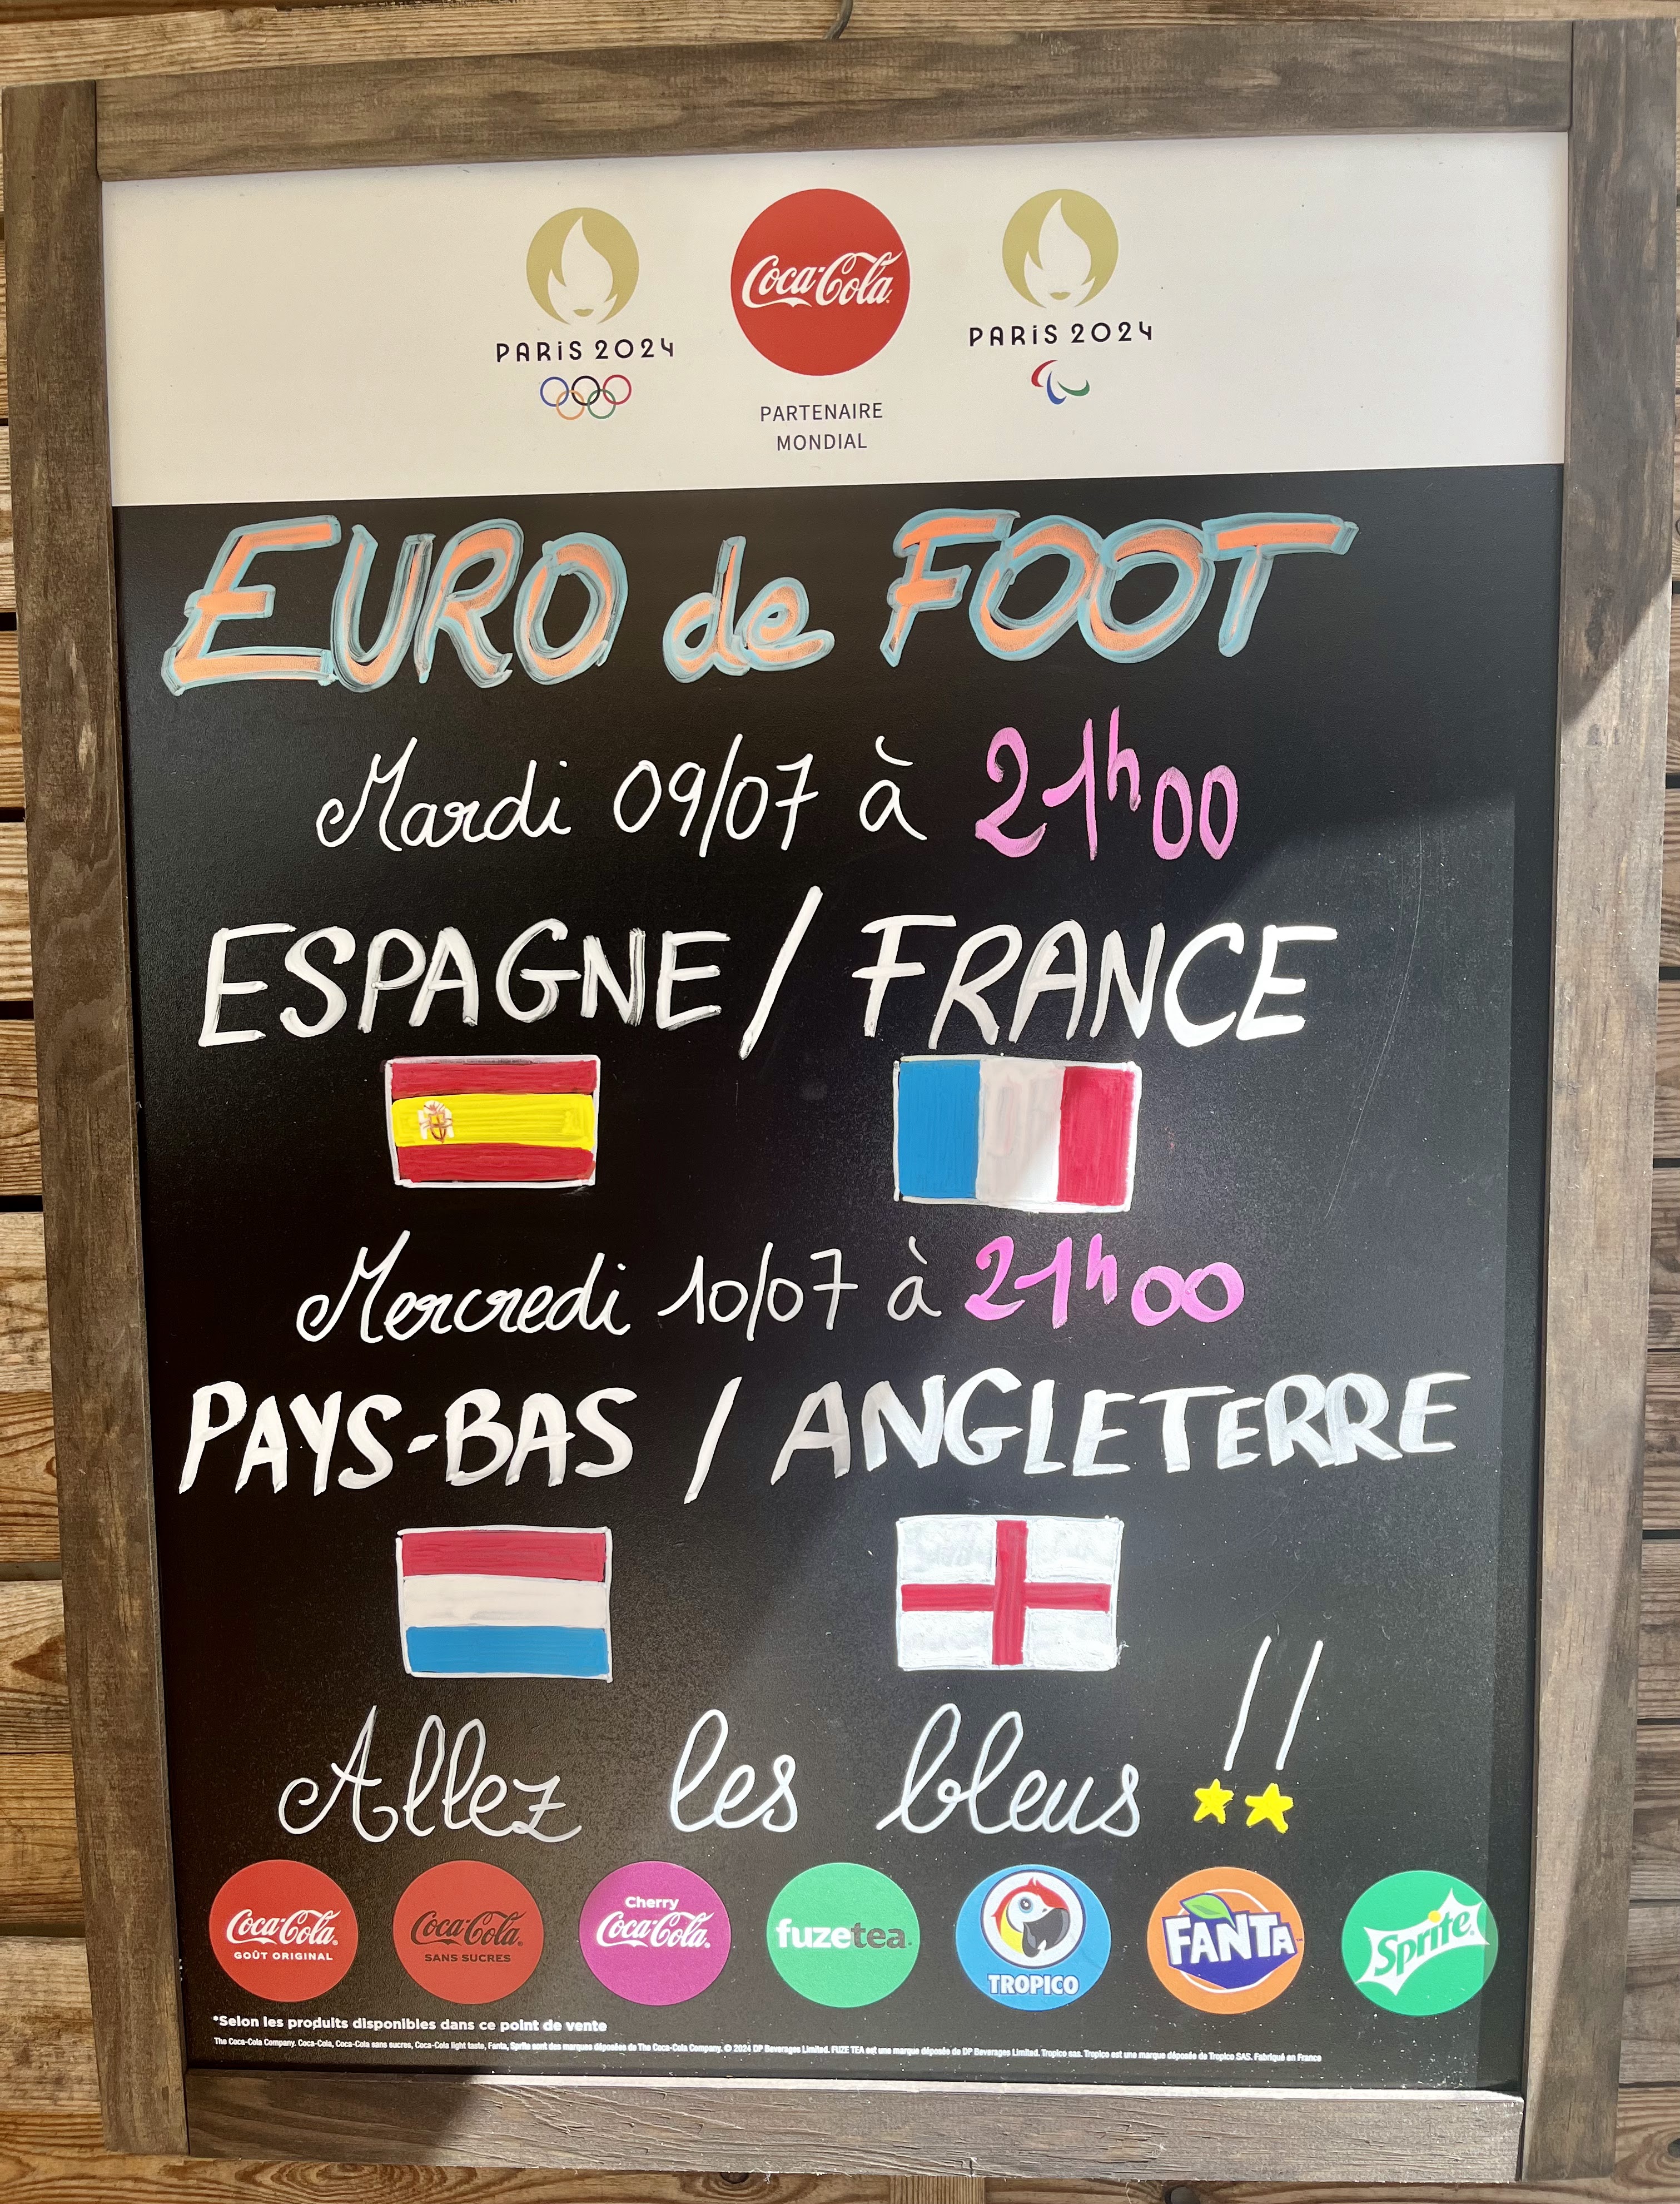 PARiS 2024
Coca-Cola
PARiS 2024
PARTENAIRE
MONDIAL
EURO de FOOT
Mardi 09/07 à 21h00
ESPAGNE / FRANCE
Mercredi 10/07 à 21h00
PAYS-BAS / ANGLETERRE
Allez les bleus !!
Coca-Cola
GOÛT ORIGINAL
Coca-Cola
SANS SUCRES
Cherry
Coca-Cola
fuzetea
TROPICO
FANTA
Sprite
*Selon les produits disponibles dans ce point de vente
The Coca-Cola Company. Coca-Cola, Coca-Cola sans sucres, Coca-Cola light taste, Fanta, Sprite sont des marques déposées de The Coca-Cola Company. © 2024 DP Beverages Limited. FUZE TEA est une marque déposée de DP Beverages Limited. Tropico sas. Tropico est une marque déposée de Tropico SAS. Fabriqué en France